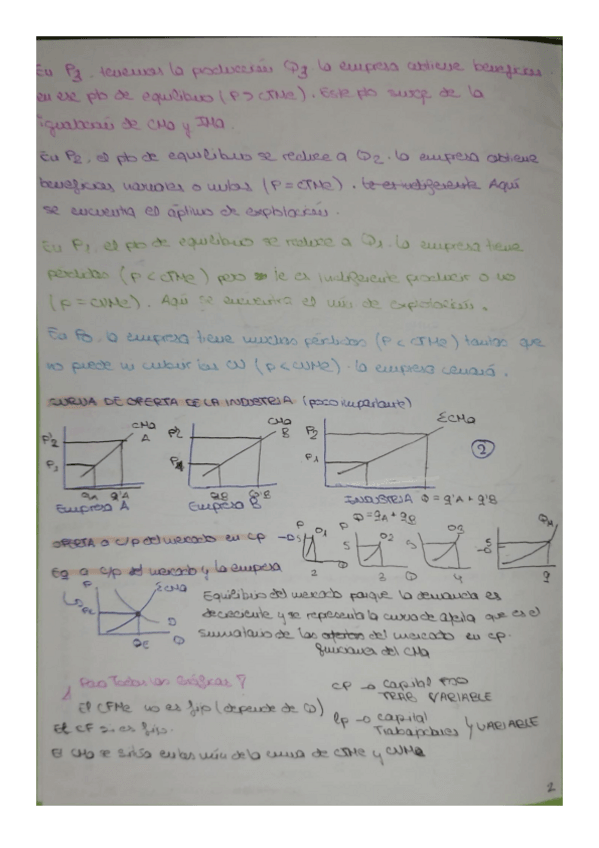 En P3, tenemos la producción Q3 la empresa obtiene beneficios
en ese pto de equilibrio (P > CTMe). Este pto surge de la
igualación de CMa y IMa.
En P2, el pto de equilibrio se reduce a Q2. La empresa obtiene
beneficios normales o nulos (P = CTMe). Aquí
se encuentra el óptimo de explotación.
En P1 el pto de equilibrio se reduce a Q1. La empresa tiene
pérdidas (P < CTMe) pero le es indiferente producir o no
(P = CVMe). Aquí se encuentra el mín de explotación.
En P0, la empresa tiene muchas pérdidas (P < CTMe) tantas que
no puede ni cubrir los CV (P < CVMe). La empresa cerrará.
CURVA DE OFERTA DE LA INDUSTRIA (poco importante)
P'2 P1 CMa A qA q'A
P'2 P1 CMa B qB q'B
P'2 P1 ΣCMa
2
Empresa A Empresa B INDUSTRIA Q = q'A + q'B
Q = qA + qB
OFERTA a C/P del mercado en CP
P O1 2
P 5 O2 3 Q
5 O3 4
9
EQ a C/p del mercado y la empresa
P PE ΣCMa D QE Q
Equilibrio del mercado porque la demanda es
decreciente y se representa la curva de oferta que es el
sumatorio de las del mercado en cp.
funciones del CMa
Para Todas las Gráficas
El CFMe no es fijo (depende de Q)
El CF es fijo.
CP → capital FIJO
TRAB. VARIABLE
lp → capital
Trabajadores VARIABLE
El CMa se sitúa en los mín de la curva de CTMe y CVMe
2